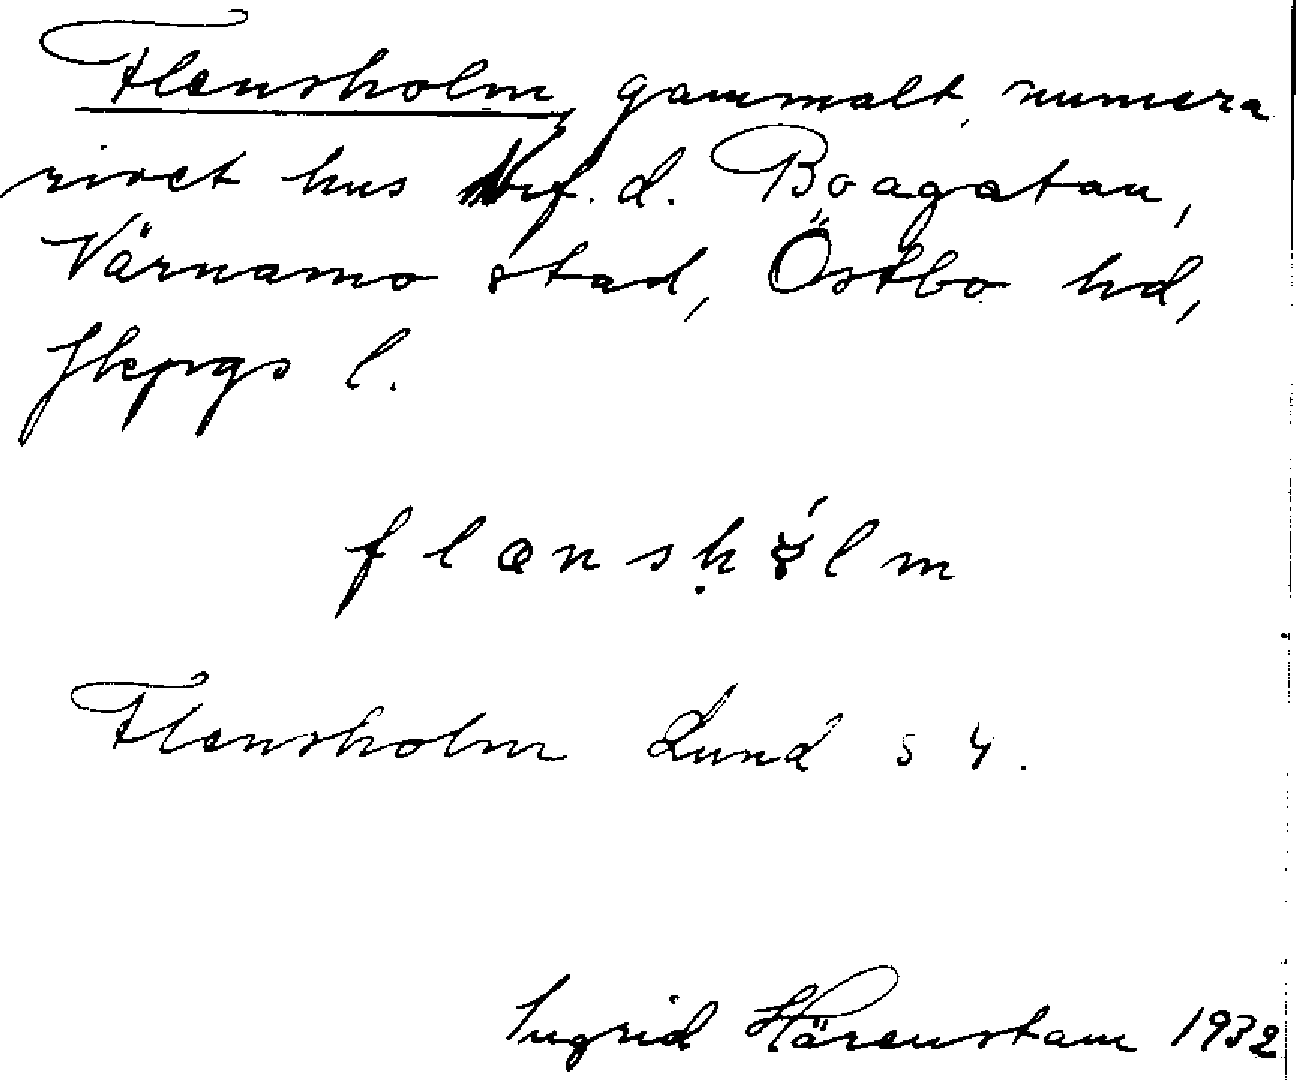 Flensholm, gammalt, numera
rivet hus n.f.d. Boagatan,
Värnamo stad, Östbo hd,
Jkpgs l.
flænshólm
Flensholm Lund s 4.
Ingrid Härenstam 1932